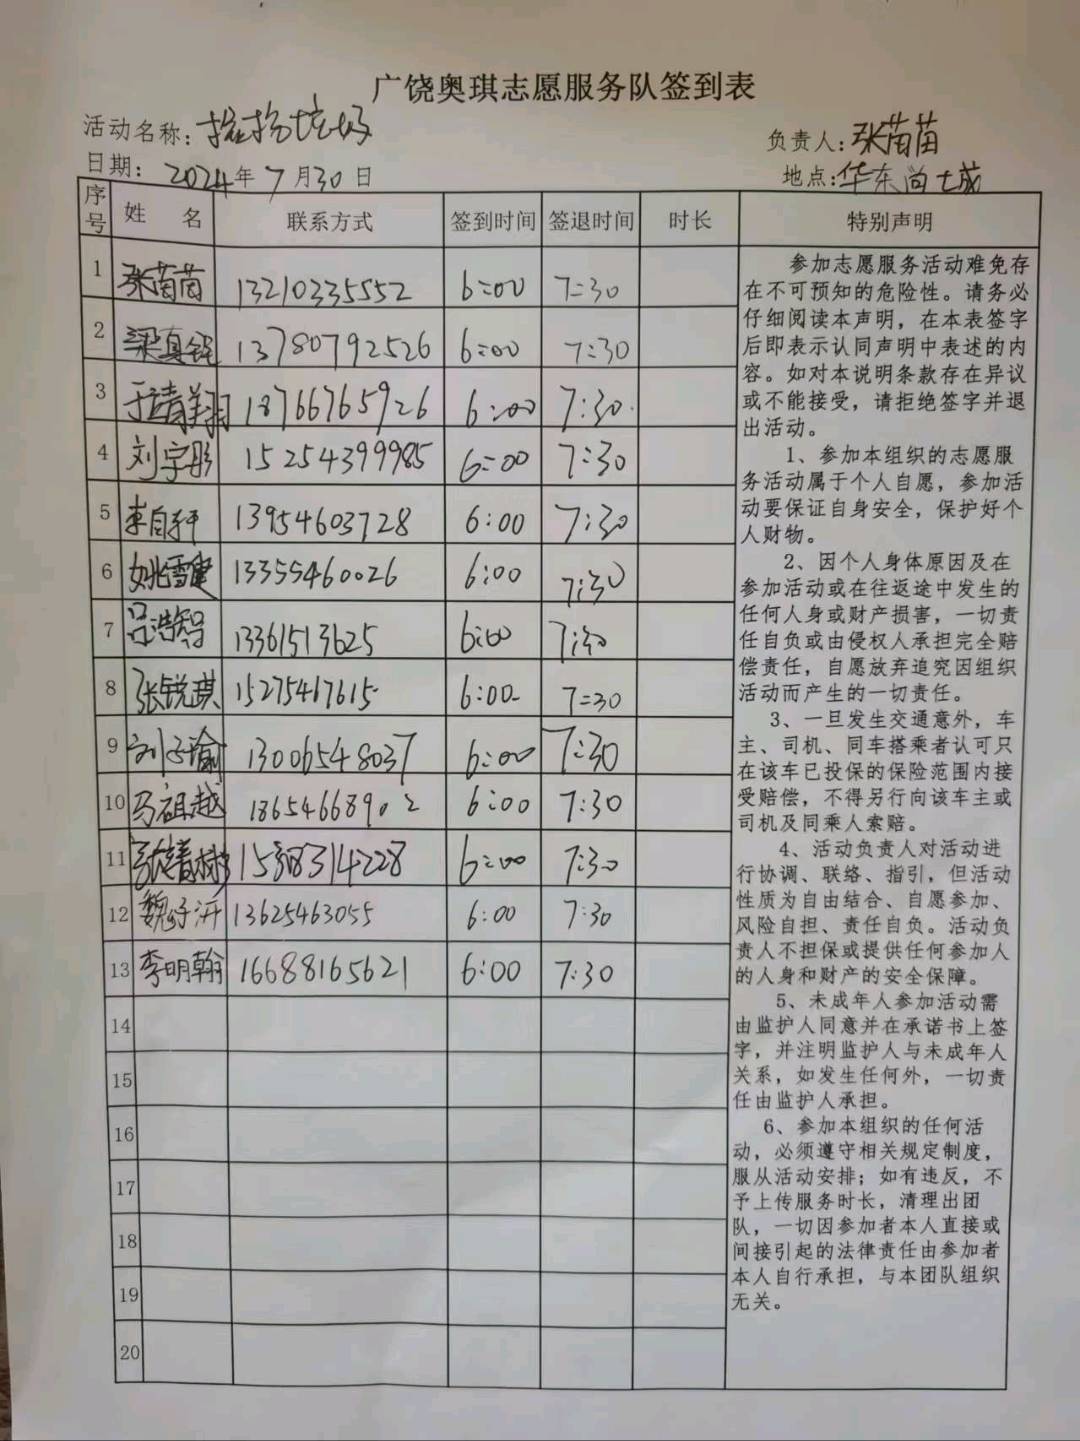 广饶奥琪志愿服务队签到表
活动名称：捡拾垃圾 负责人：张苗苗
日期：2024年7月30日 地点：华东尚城
序号 姓 名 联系方式 签到时间 签退时间 时长 特别声明
1 张苗苗 13210335552 6:00 7:30
2 梁真铭 13780792526 6:00 7:30
3 于靖翔 18766765926 6:00 7:30
4 刘宇彤 15254399985 6:00 7:30
5 李自轩 13954603728 6:00 7:30
6 姚雪建 13355460026 6:00 7:30
7 吕浩智 13361513625 6:00 7:30
8 张锐琪 15275417615 6:00 7:30
9 刘子瑜 13006548037 6:00 7:30
10 马祖越 18654668902 6:00 7:30
11 张靖树 6:00 7:30
12 魏子沂 13625463055 6:00 7:30
13 李明翰 16688165621 6:00 7:30
14
15
16
17
18
19
20
参加志愿服务活动难免存
在不可预知的危险性。请务必
仔细阅读本声明，在本表签字
后即表示认同声明中表述的内
容。如对本说明条款存在异议
或不能接受，请拒绝签字并退
出活动。
1、参加本组织的志愿服
务活动属于个人自愿，参加活
动要保证自身安全，保护好个
人财物。
2、因个人身体原因及在
参加活动或在往返途中发生的
任何人身或财产损害，一切责
任自负或由侵权人承担完全赔
偿责任，自愿放弃追究因组织
活动而产生的一切责任。
3、一旦发生交通意外，车
主、司机、同车搭乘者认可只
在该车已投保的保险范围内接
受赔偿，不得另行向该车主或
司机及同乘人索赔。
4、活动负责人对活动进
行协调、联络、指引，但活动
性质为自由结合、自愿参加、
风险自担、责任自负。活动负
责人不担保或提供任何参加人
的人身和财产的安全保障。
5、未成年人参加活动需
由监护人同意并在承诺书上签
字，并注明监护人与未成年人
关系，如发生任何外，一切责
任由监护人承担。
6、参加本组织的任何活
动，必须遵守相关规定制度，
服从活动安排；如有违反，不
予上传服务时长，清理出团
队，一切因参加者本人直接或
间接引起的法律责任由参加者
本人自行承担，与本团队组织
无关。